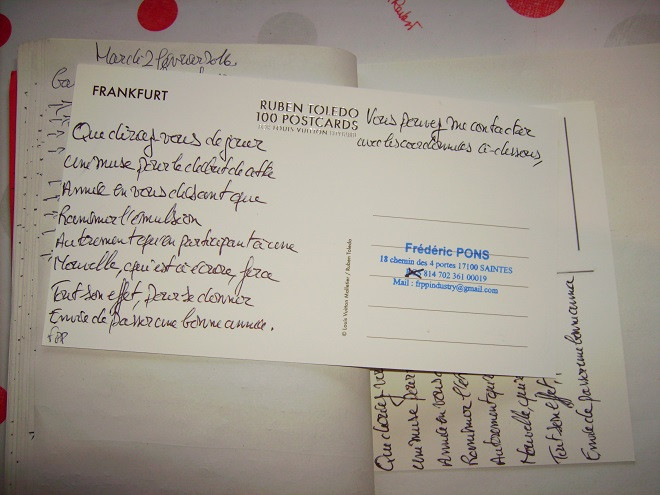 Mardi 2 février 2016.
FRANKFURT
RUBEN TOLEDO
100 POSTCARDS
Vous pouvez me contacter
avec les coordonnées ci-dessous,
Que diriez vous de jouer
une muse pour le début de cette
Année en vous disant que
Ranimer l'émulsion
Autrement qu'en participant à une
Nouvelle, qui est à écrire, fera
Tout son effet, pour se donner
Envie de passer une bonne année.
FPP
© Louis Vuitton Malletier / Ruben Toledo
Frédéric PONS
18 chemin des 4 portes 17100 SAINTES
814 702 361 00019
Mail : frppindustry@gmail.com
Que diriez vo
une muse pour
Année en vous
Ranimer l'é
Autrement qu
Nouvelle, qui
Tout son effet,
Envie de passer une bonne année